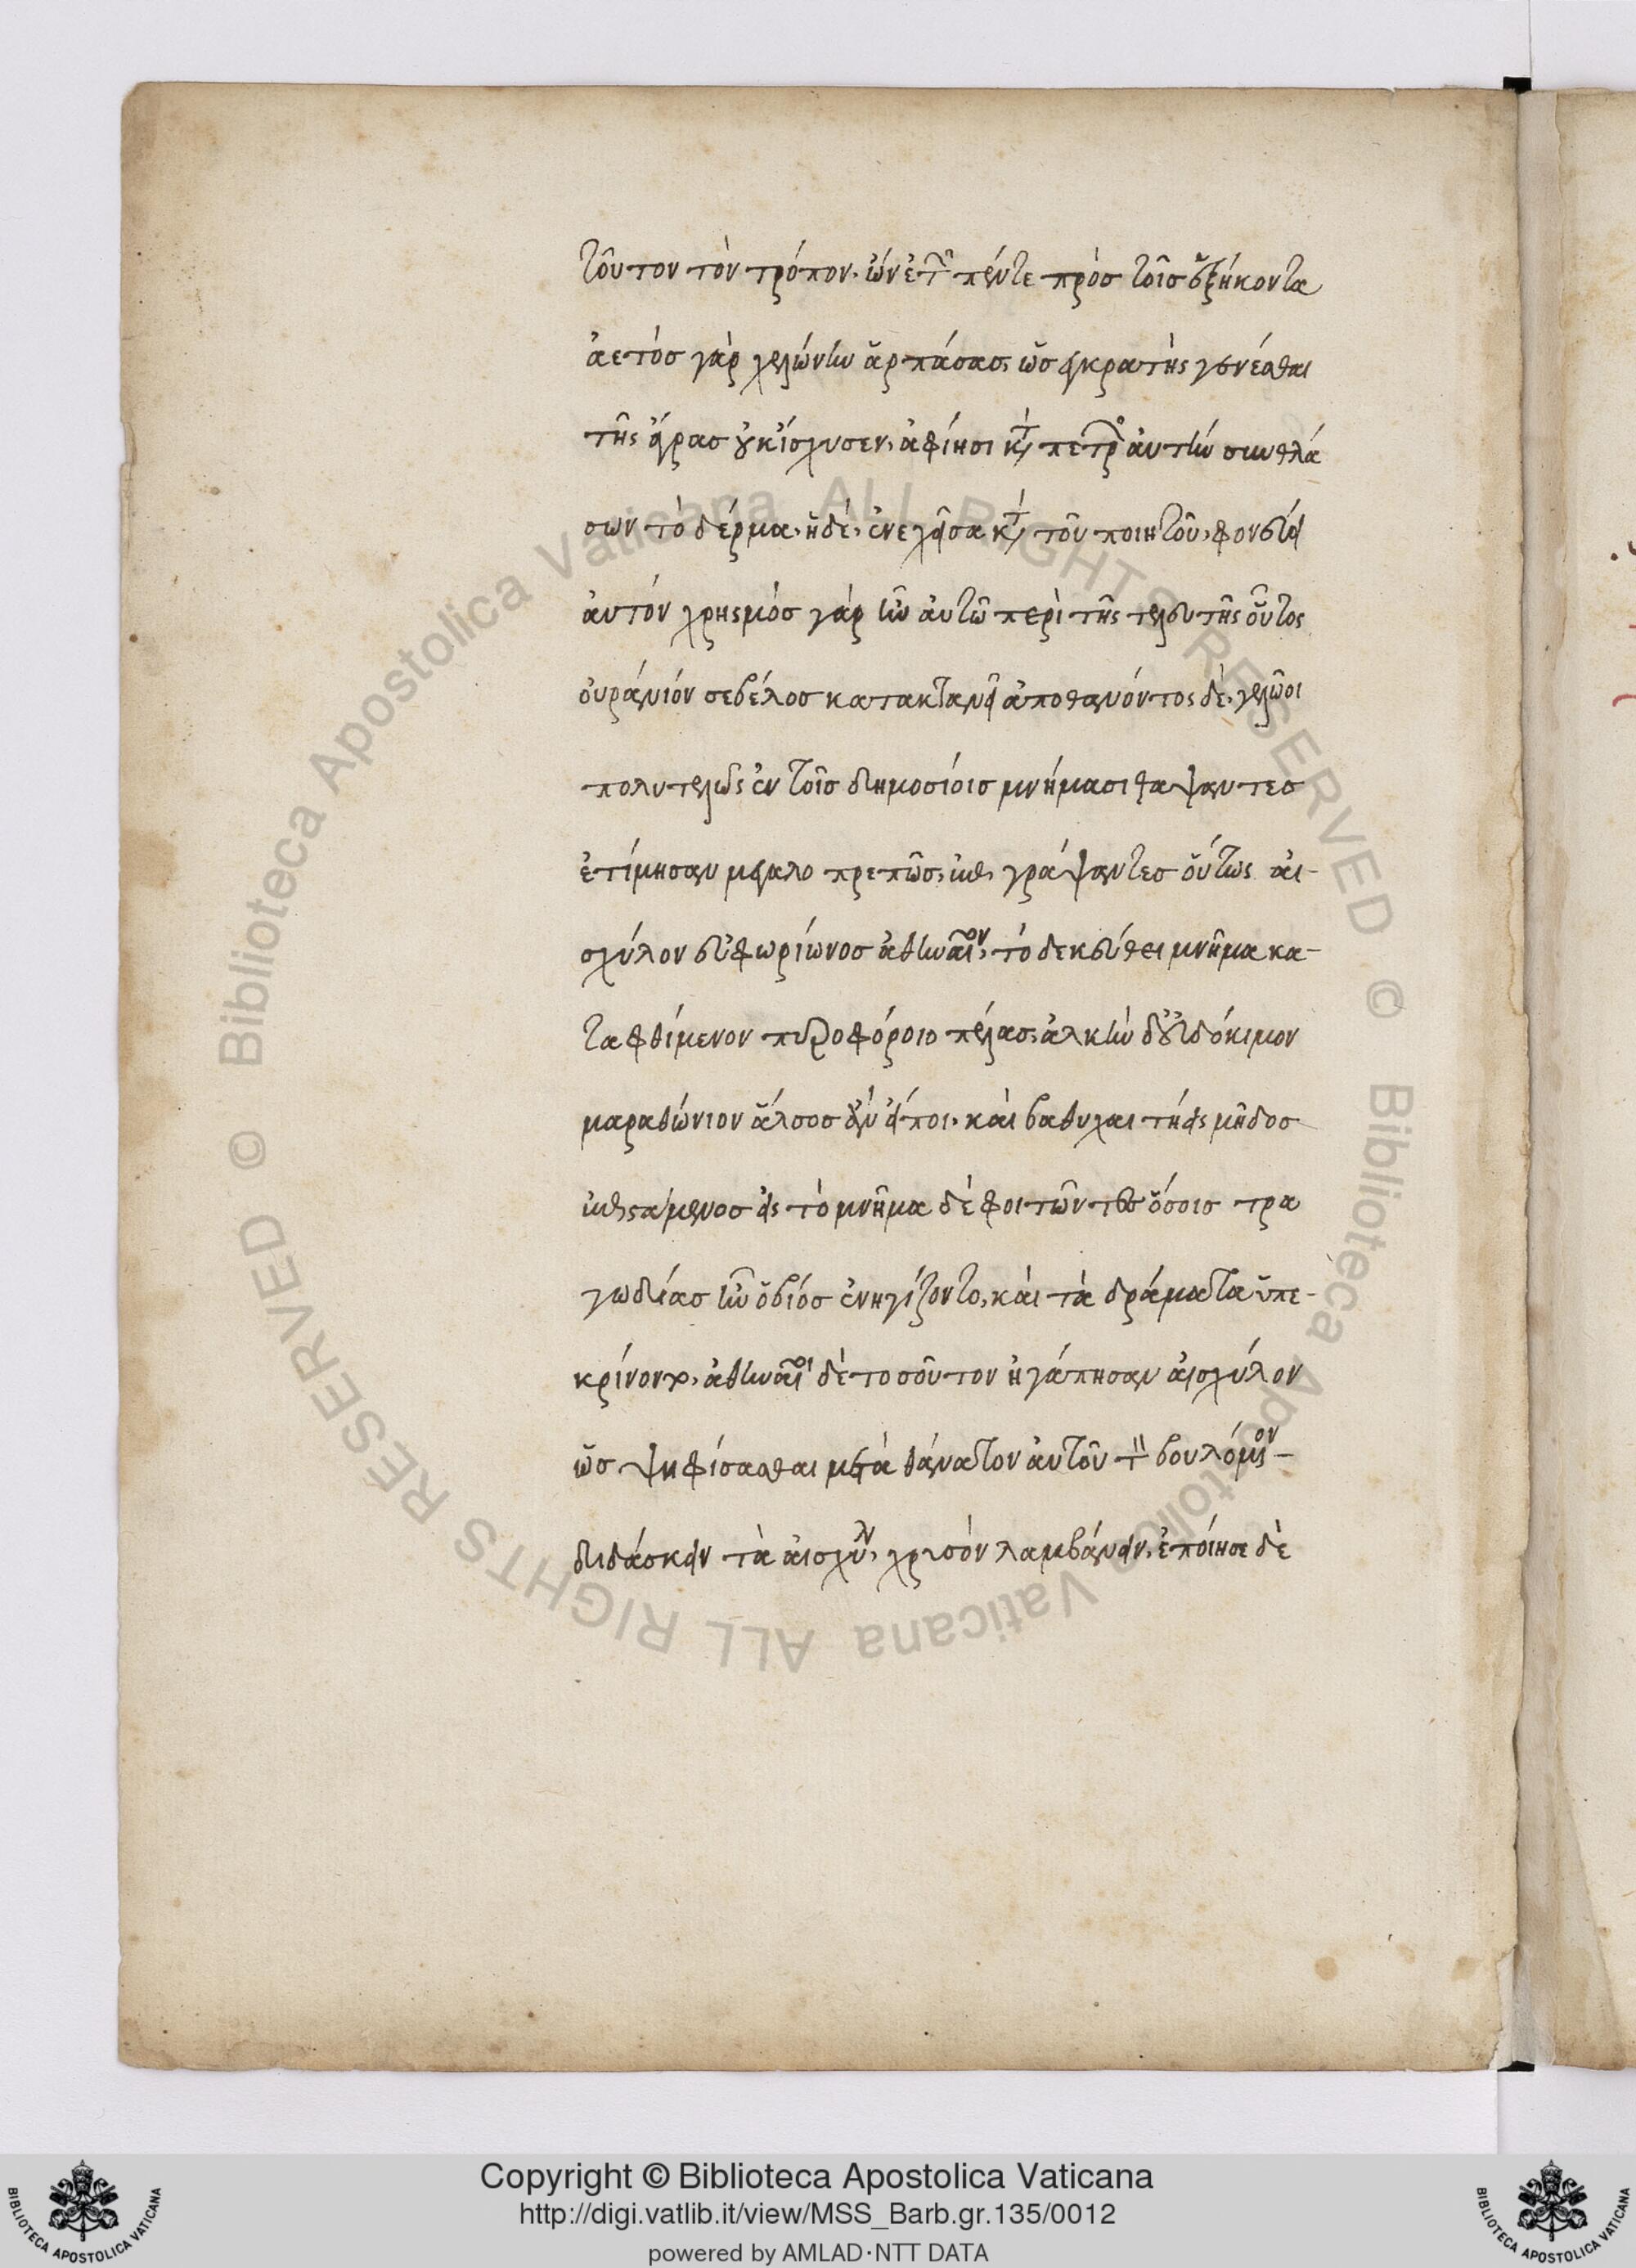 τοῦτον τὸν τρόπον, ὢν ἐτῶν πέντε πρὸς τοῖς ἑξήκοντα
ἀετὸς γὰρ χελώνην ἁρπάσας, ὡς ἐγκρατὴς γενέσθαι
τῆς ἄγρας οὐκ ἴσχυσεν, ἀφίησι κατὰ πετρῶν αὐτὴν συνθλά
σων τὸ δέρμα, ἡ δὲ, ἐνεχθεῖσα κατὰ τοῦ ποιητοῦ, φονεύει
ἀυτόν χρησμὸς γάρ ἦν ἀυτῶ περὶ τῆς τελευτῆς οὗτος
οὐράνιόν σε βέλος κατακτανεῖ ἀποθανόντος δὲ, γελῶοι
πολυτελῶς ἐν τοῖς δημοσίοις μνήμασι θαψαντες
ἐτίμησαν μεγαλοπρεπῶς, ἐπιγράψαντες οὕτως ἀι-
σχύλον εὐφωρίωνος ἀθηναῖον, τό δε κεύθει μνῆμα κα-
ταφθίμενον πυροφόροιο πέλας, ἀλκὴν δ' εὐδόκιμον
μαραθώνιον ἄλσος ἂν εἴποι, καὶ βαθυχαιτήεις μῆδος
ἐπιστάμενος εἰς τὸ μνῆμα δὲ φοιτῶντες ὅσοις τρα
γωδίας ἦν ὁ βίος ἐνηγίζοντο, καὶ τὰ δράματα ὑπε-
κρίνοντο, ἀθηναῖοι δὲ τοσοῦτον ἠγάπησαν ἀισχύλον
ὡς ψηφίσασθαι μετὰ θάνατον ἀυτοῦ τὸν βουλόμενον
διδάσκειν τὰ ἀισχύλου, χρυσὸν λαμβάνειν, ἐποίησε δὲ
Copyright © Biblioteca Apostolica Vaticana
http://digi.vatlib.it/view/MSS_Barb.gr.135/0012
powered by AMLAD·NTT DATA
BIBLIOTECA APOSTOLICA VATICANA
BIBLIOTECA APOSTOLICA VATICANA
© Biblioteca Apostolica Vaticana ALL RIGHTS RESERVED © Biblioteca Apostolica Vaticana ALL RIGHTS RESERVED